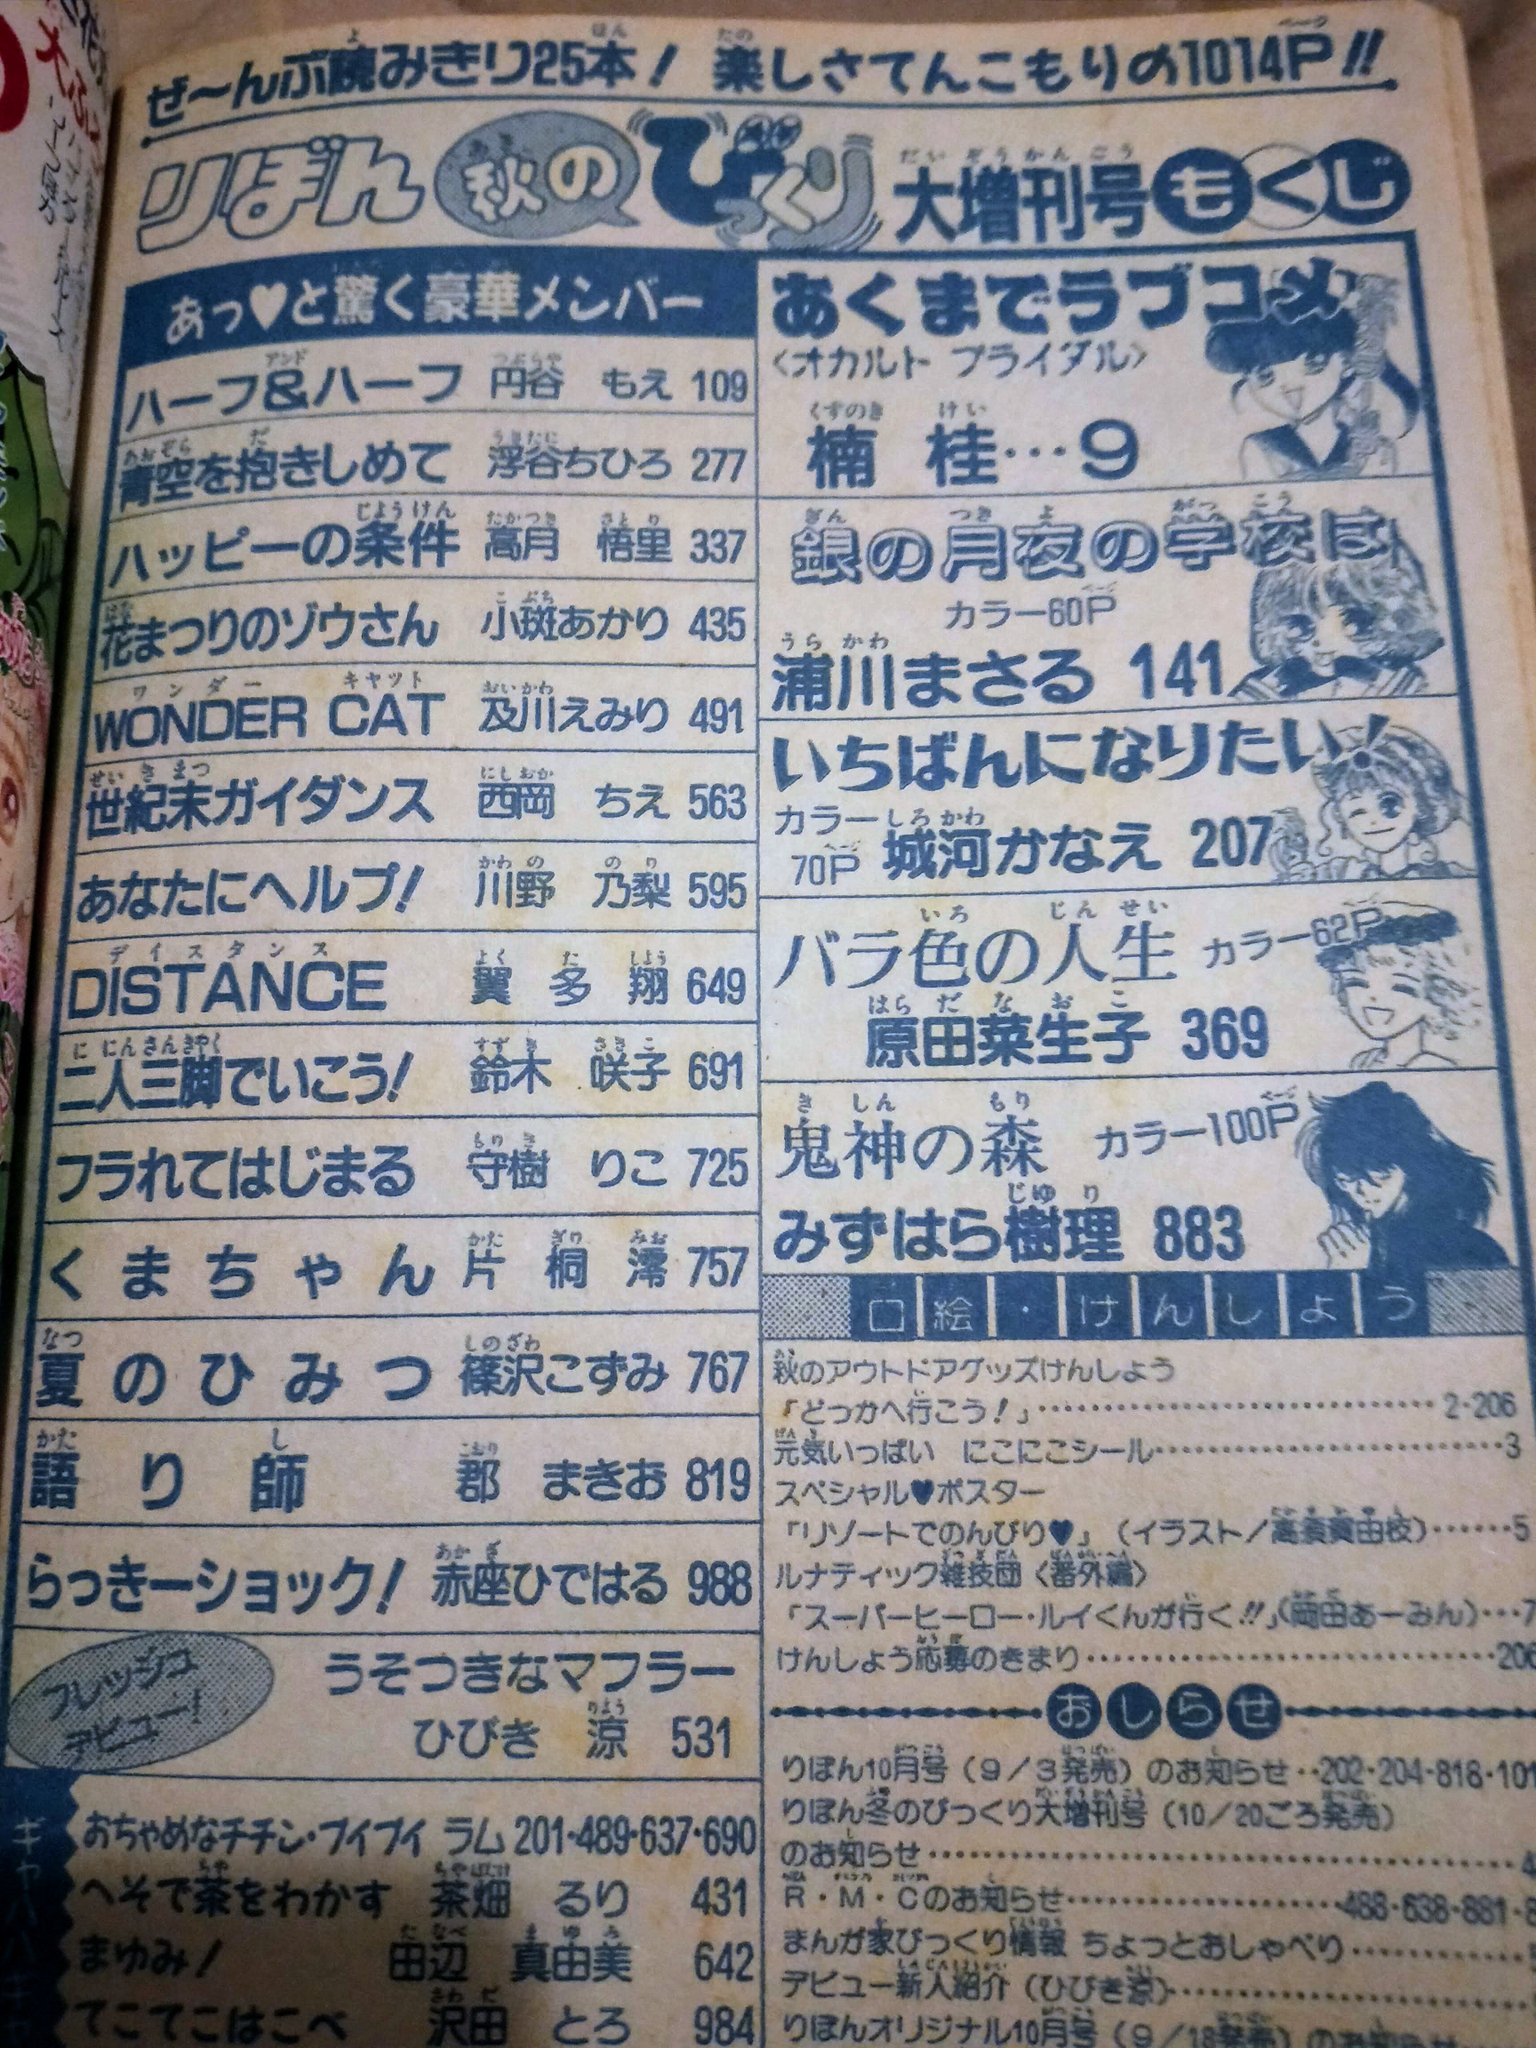 ぜ〜んぶ読みきり25本！ 楽しさてんこもりの1014P!!
りぼん 秋の びっくり 大増刊号 もくじ
あっ♥と驚く豪華メンバー
ハーフ&ハーフ 円谷 もえ 109
青空を抱きしめて 浮谷ちひろ 277
ハッピーの条件 高月 悟里 337
花まつりのゾウさん 小斑あかり 435
WONDER CAT 及川えみり 491
世紀末ガイダンス 西岡 ちえ 563
あなたにヘルプ！ 川野 乃梨 595
DISTANCE 翼 多 翔 649
二人三脚でいこう！ 鈴木 咲子 691
フラれてはじまる 守樹 りこ 725
くまちゃん 片桐 澪 757
夏のひみつ 篠沢こずみ 767
語り師 郡 まきお 819
らっきーショック！ 赤座ひではる 988
フレッシュデビュー！
うそつきなマフラー
ひびき 涼 531
おちゃめなチチン・プイプイ ラム 201・489・637・690
へそで茶をわかす 茶畑 るり 431
まゆみ！ 田辺 真由美 642
てこてこはこべ 沢田 とろ 984
あくまでラブコメ
〈オカルト ブライダル〉
楠 桂…9
銀の月夜の学校は
カラー60P
浦川まさる 141
いちばんになりたい！
カラー70P 城河かなえ 207
バラ色の人生 カラー62P
原田菜生子 369
鬼神の森 カラー100P
みずはら樹理 883
口絵・けんしょう
秋のアウトドアグッズけんしょう
「どっかへ行こう！」…… 2・206
元気いっぱい にこにこシール…… 3
スペシャル♥ポスター
「リゾートでのんびり♥」（イラスト／高須賀由枝）…… 5
ルナティック雑技団〈番外編〉
「スーパーヒーロー・ルイくんが行く!!」（岡田あーみん）… 7
けんしょう応募のきまり…… 206
おしらせ
りぼん10月号（9／3発売）のお知らせ‥202・204・818・101
りぼん冬のびっくり大増刊号（10／20ごろ発売）
のお知らせ……
R・M・Cのお知らせ……488・638・881・
まんが家びっくり情報 ちょっとおしゃべり……
デビュー新人紹介（ひびき涼）……
りぼんオリジナル10月号（9／18発売）のお知らせ